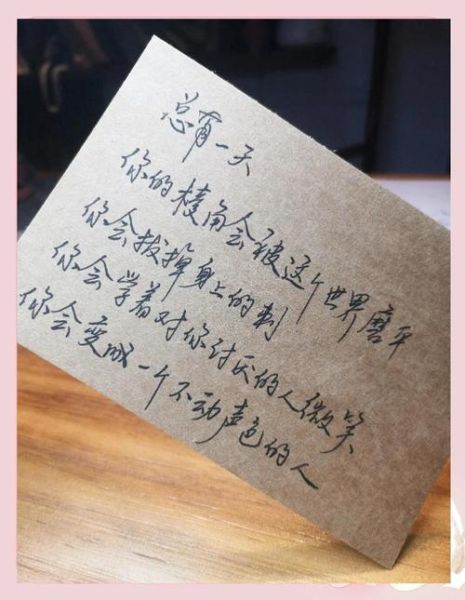 总有一天
你的棱角会被这个世界磨平
你会拔掉身上的刺
你会学着对你讨厌的人微笑
你会变成一个不动声色的人